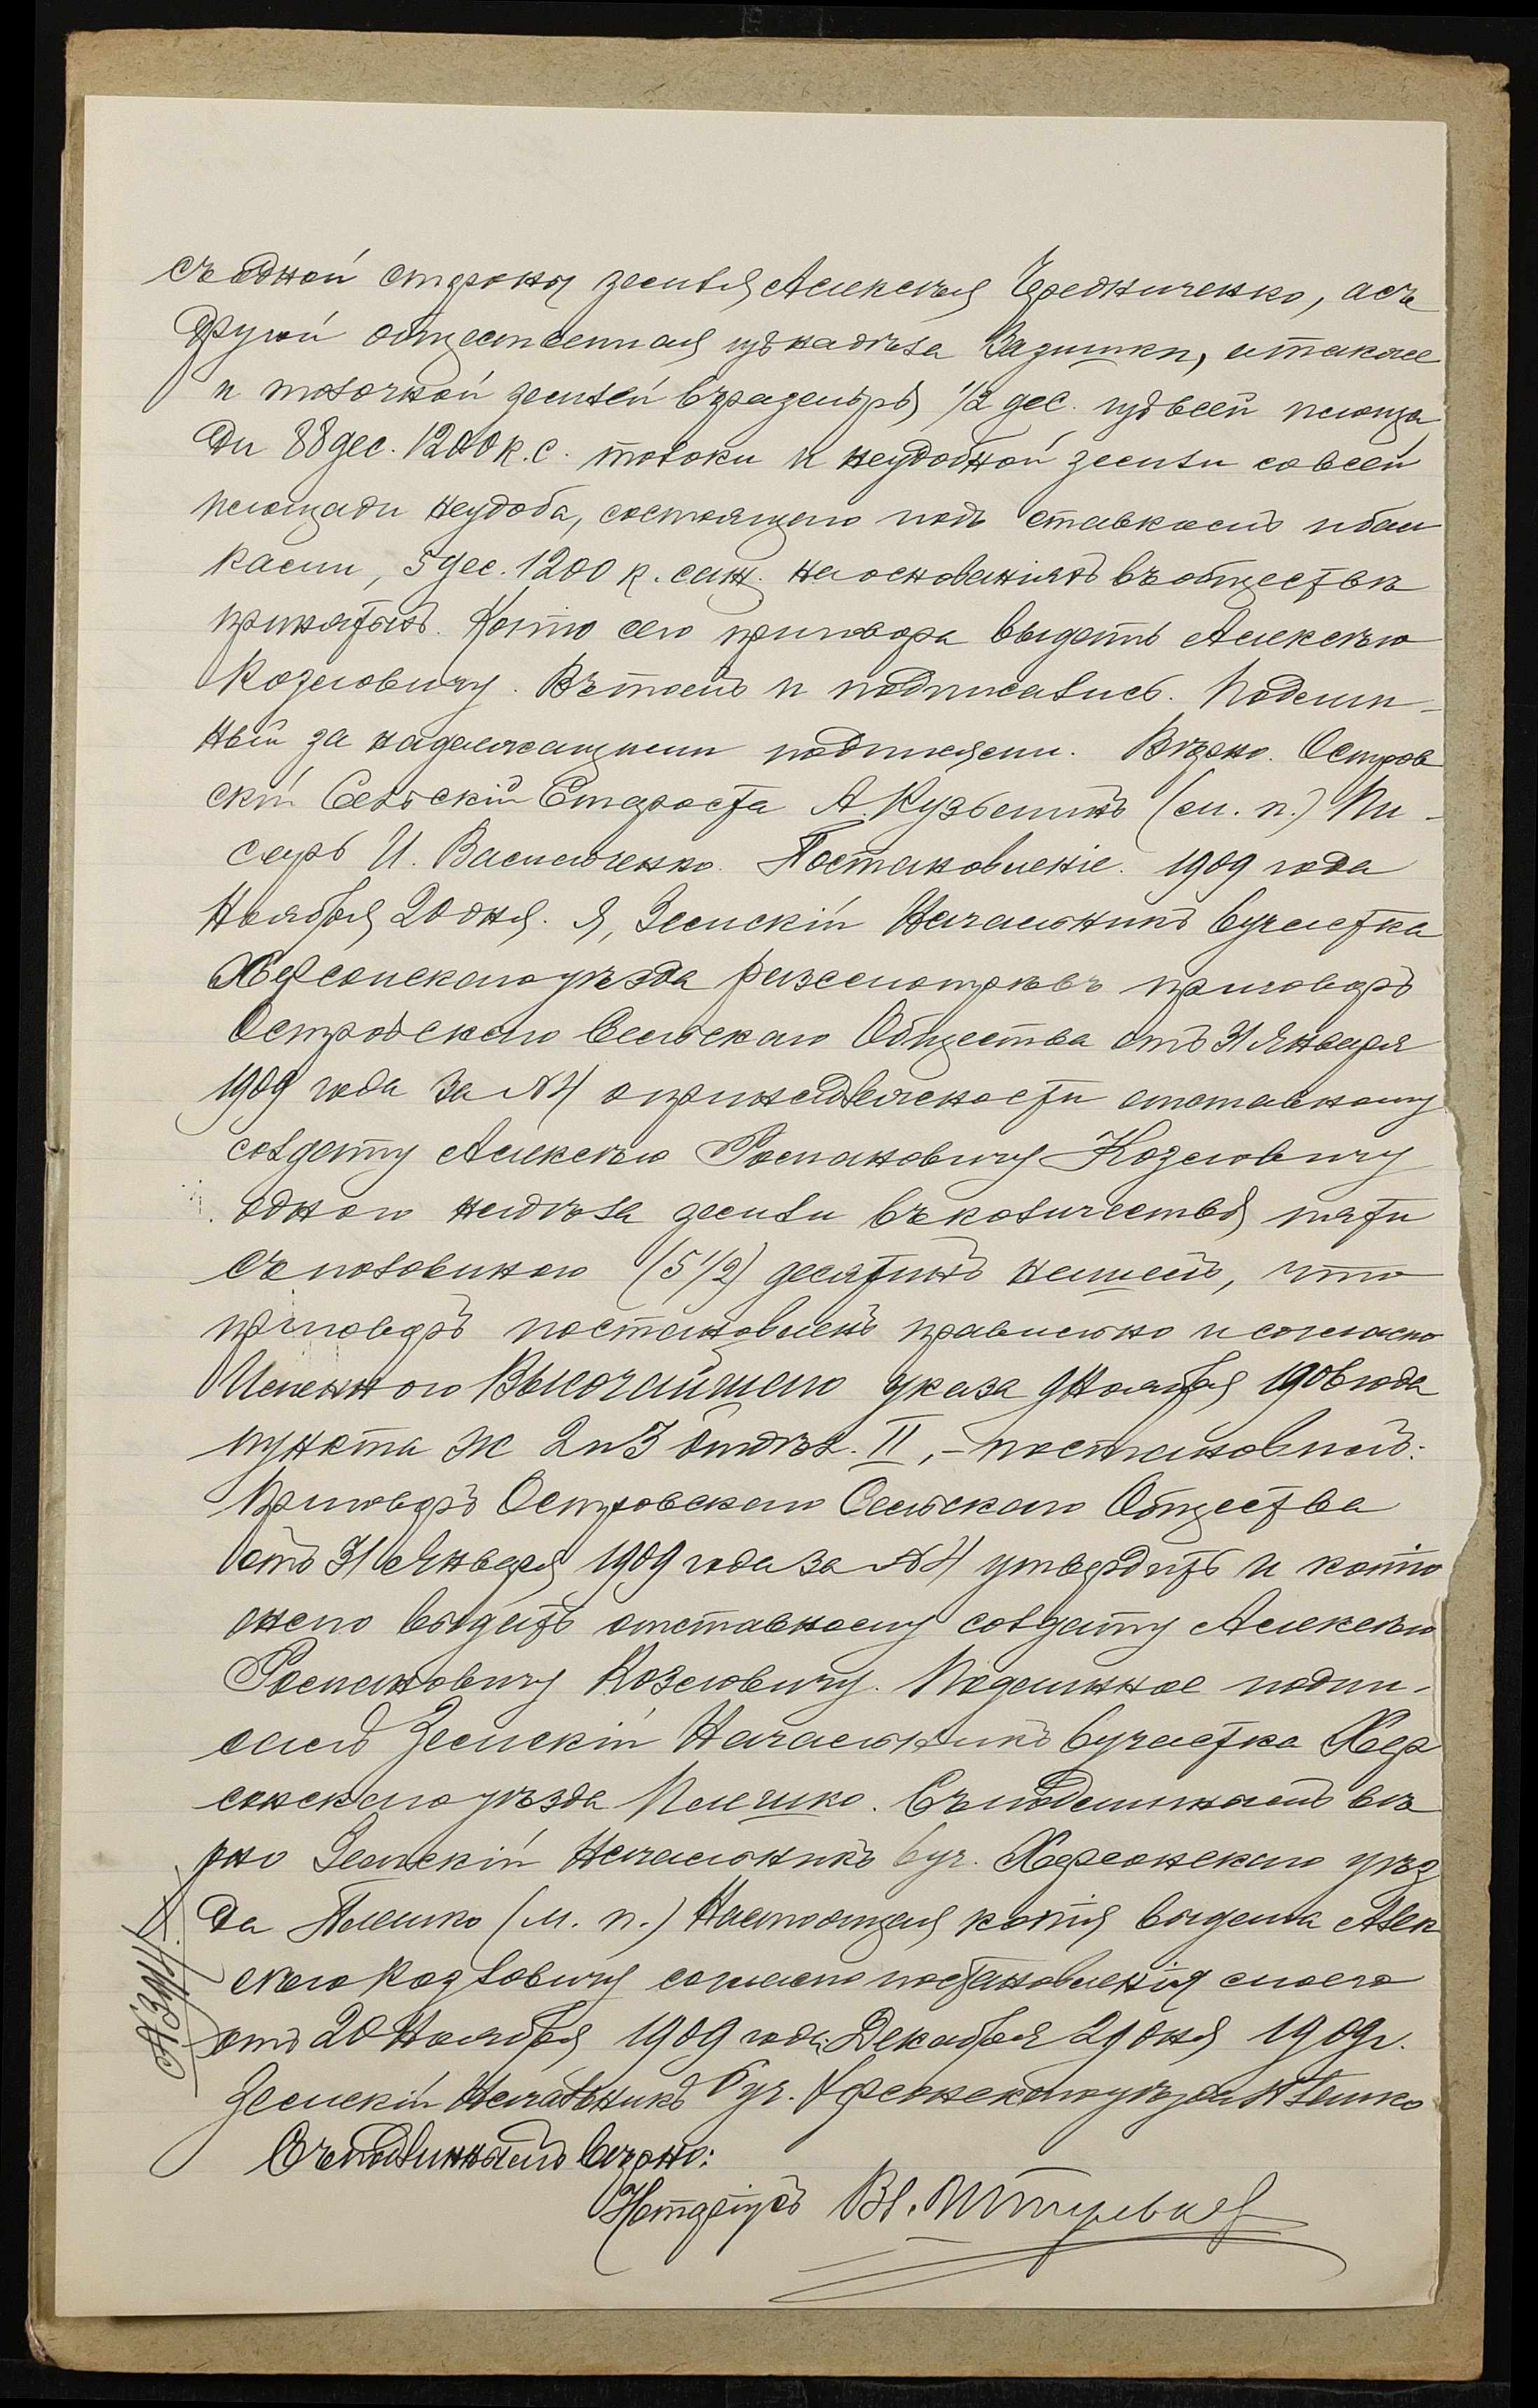 съ одной стороны земля Алексѣя Чередниченко, а съ
другой общественная изъ надѣла Вазилики, а также
и толочной землей въ размѣрѣ 1/2 дес. изъ всей площа
ди 88 дес. 1200 к. с. толоки и неудобной земли со всей
площади неудоба, состоящаго подъ ставкомъ и бал
ками, 5 дес. 1200 к. саж. на основаніяхъ въ обществѣ
принятыхъ. Копію сего приговора выдать Алексѣю
Козловичу. Въ томъ и подписались. Подлин-
ный за надлежащими подписями. Вѣрно. Остров
скій Сельскій Староста А. Кузьминъ (м. п.) Пи-
сарь И. Василенко. Постановленіе. 1909 года
Ноября 20 дня. Я, Земскій Начальникъ 6 участка
Херсонскаго уѣзда разсмотрѣвъ приговоръ
Островскаго Сельскаго Общества отъ 31 Января
1909 года за №4 о принадлежности отставному
солдату Алексѣю Романовичу Козловичу
одного надѣла земли въ количествѣ пяти
съ половиною (5 1/2) десятинъ нашелъ, что
приговоръ постановленъ правильно и согласно
Именного Высочайшаго указа 9 Ноября 1906 года
пункта ж 2 и 3 отдѣл. II, - постановилъ:
Приговоръ Островскаго Сельскаго Общества
отъ 31 Января 1909 года за №4 утвердить и копію
онаго выдать отставному солдату Алексѣю
Романовичу Козловичу. Подлинное подпи-
салъ Земскій Начальникъ 6 участка Хер
сонскаго уѣзда Плешко. Съ подлиннымъ вѣ
рно Земскій Начальникъ 6 уч. Херсонскаго уѣз
да Плешко (м. п.) Настоящая копія выдана Алек
сѣю Козловичу согласно постановленія моего
отъ 20 Ноября 1909 года. Декабря 29 дня 1909 г.
Земскій Начальникъ 6 уч. Херсонскаго уѣзда Плешко
Съ подлиннымъ вѣрно:
Нотаріусъ Вл.